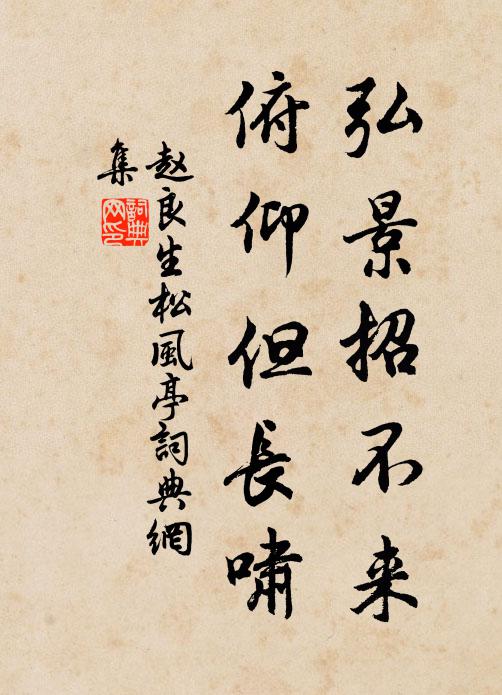 弘景招不来
俯仰但長嘯
赵良生松風亭詞典網
集
詞典
网印